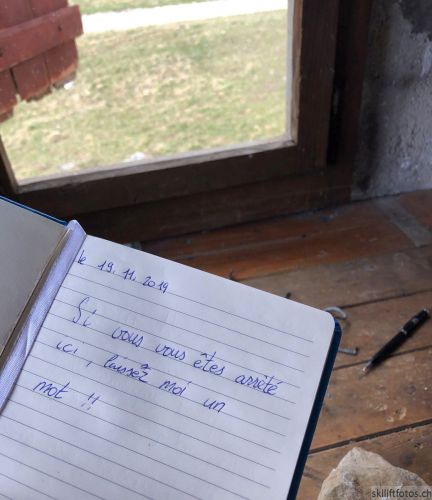 le 19.11.2019
Si vous vous êtes arrêté
ici, laissez moi un
mot !!
skiliftfotos.ch